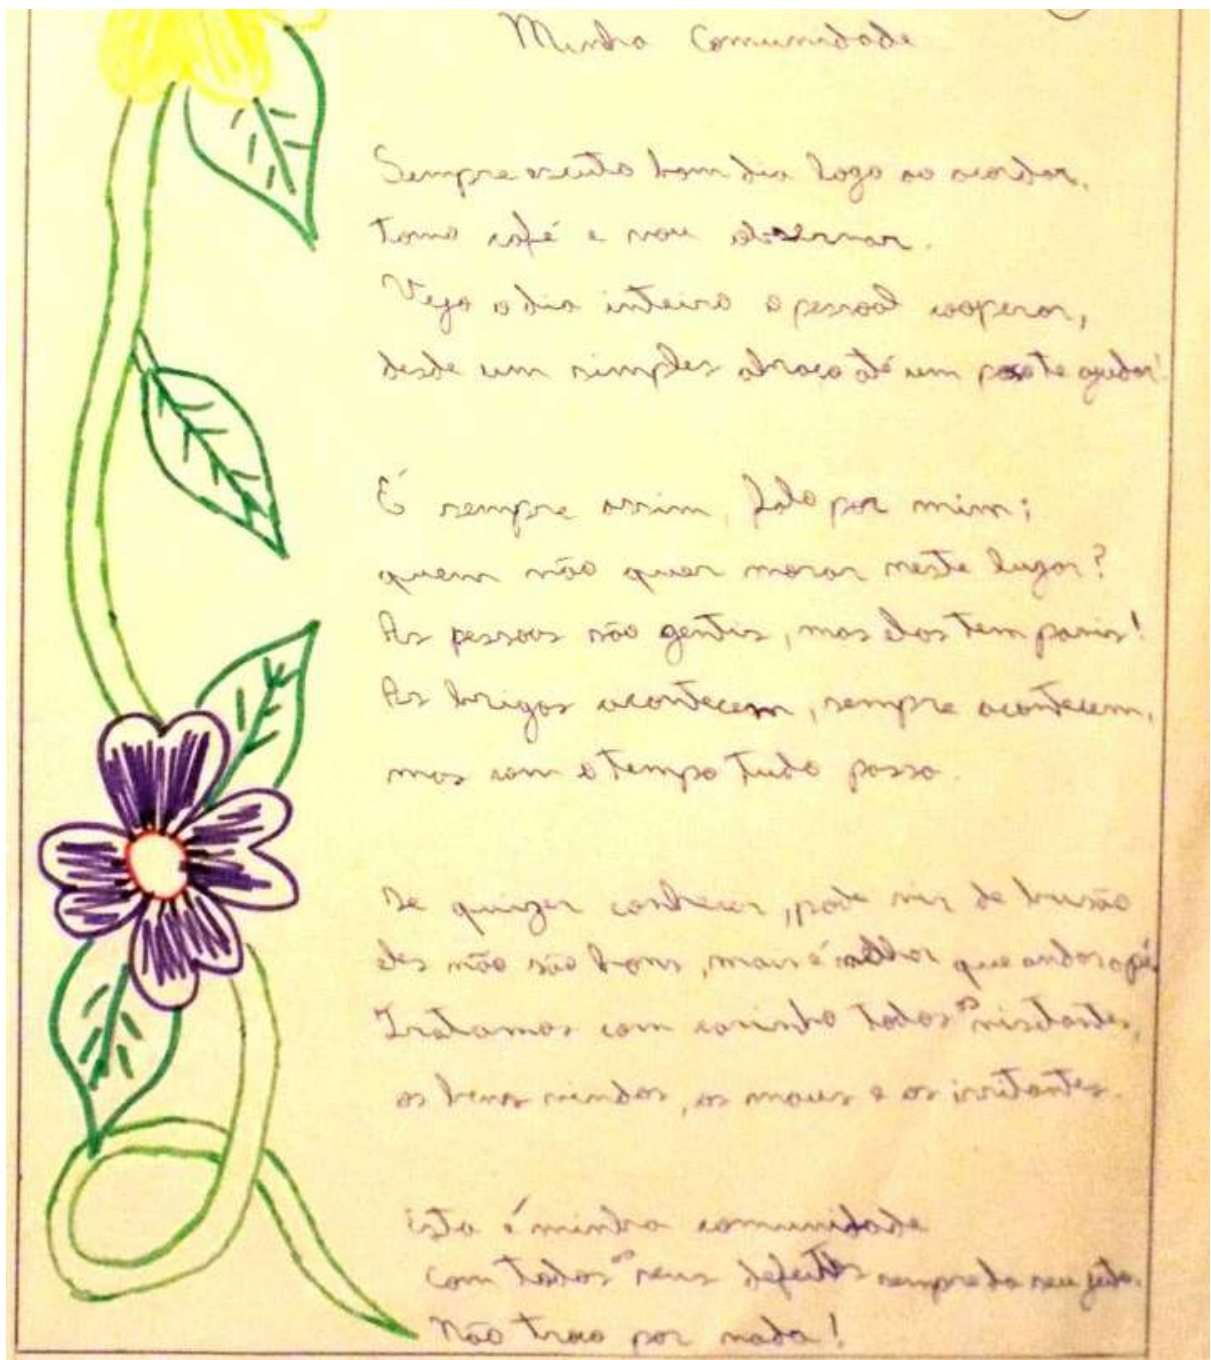 Minha Comunidade
Sempre escuto bom dia logo ao acordar,
tomo café e vou observar.
Vejo o dia inteiro o pessoal cooperar,
desde um simples abraço até um ajudar!
É sempre assim, falo por mim;
quem não quer morar neste lugar?
As pessoas são gentis, mas elas tem pavis!
As brigas acontecem, sempre acontecem,
mas com o tempo tudo passa.
Se quizer conhecer, pode vir de busão
eles não são bons, mais é melhor que andar a pé.
Tratamos com carinho todos os visitantes,
os bens vindos, os maus e os irritantes.
Esta é minha comunidade
com todos os seus defeitos sempre da seu jeito.
Não troco por nada!